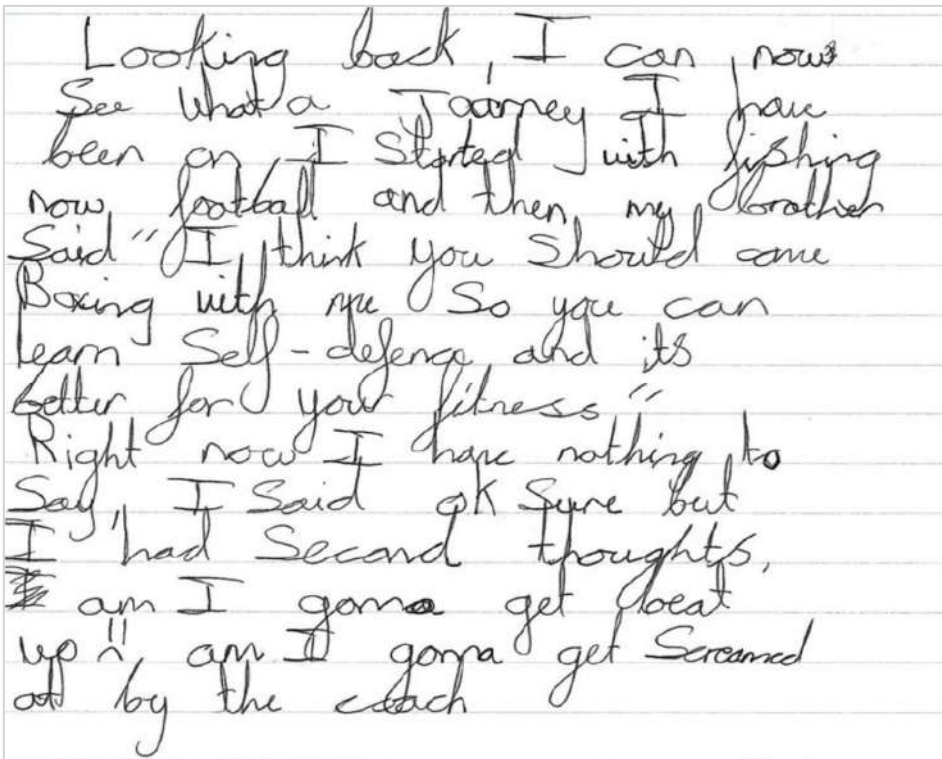 Looking back, I can now
See what a Journey I have
been on, I Started with fishing
now football and then my brother
Said " I think you Should come
Boxing with me So you can
learn Self-defence and its
better for your fitness "
Right now I have nothing to
Say, I Said ok Sure but
I had Second thoughts,
am I gonna get beat
up " am I gonna get Screamed
at by the coach